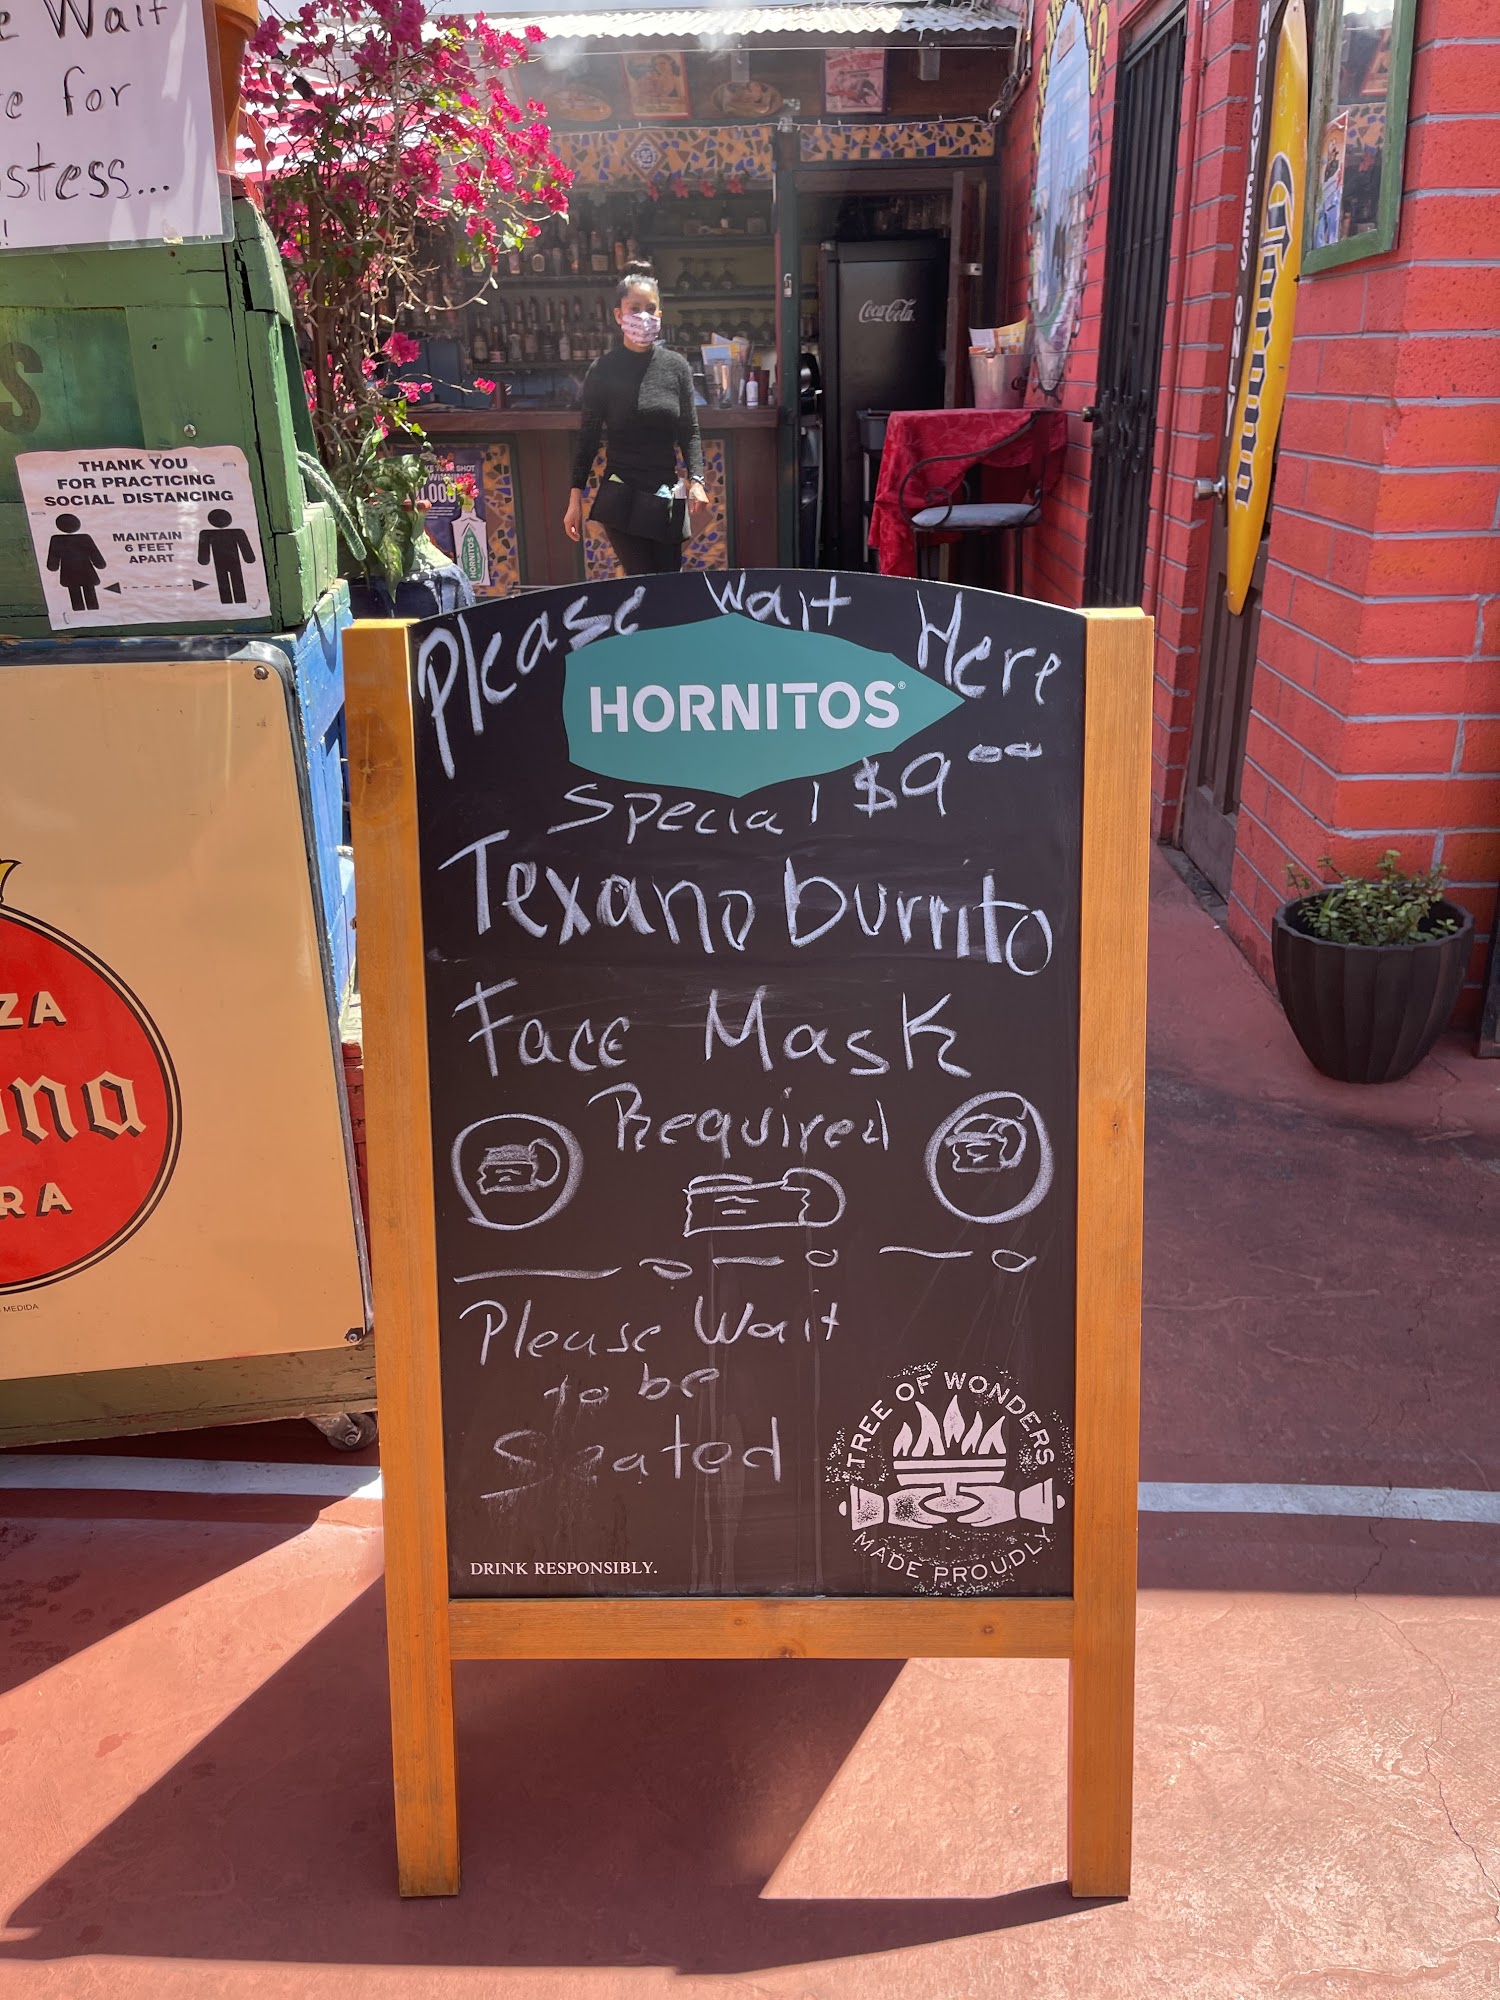 Wait
for
!
THANK YOU
FOR PRACTICING
SOCIAL DISTANCING
MAINTAIN
6 FEET
APART
Coca-Cola
HORNITOS
Please Wait Here
HORNITOS®
Special $9.00
Texano burrito
Face Mask
Required
Please Wait
to be
Seated
TREE OF WONDERS
MADE PROUDLY
DRINK RESPONSIBLY.
MEDIDA